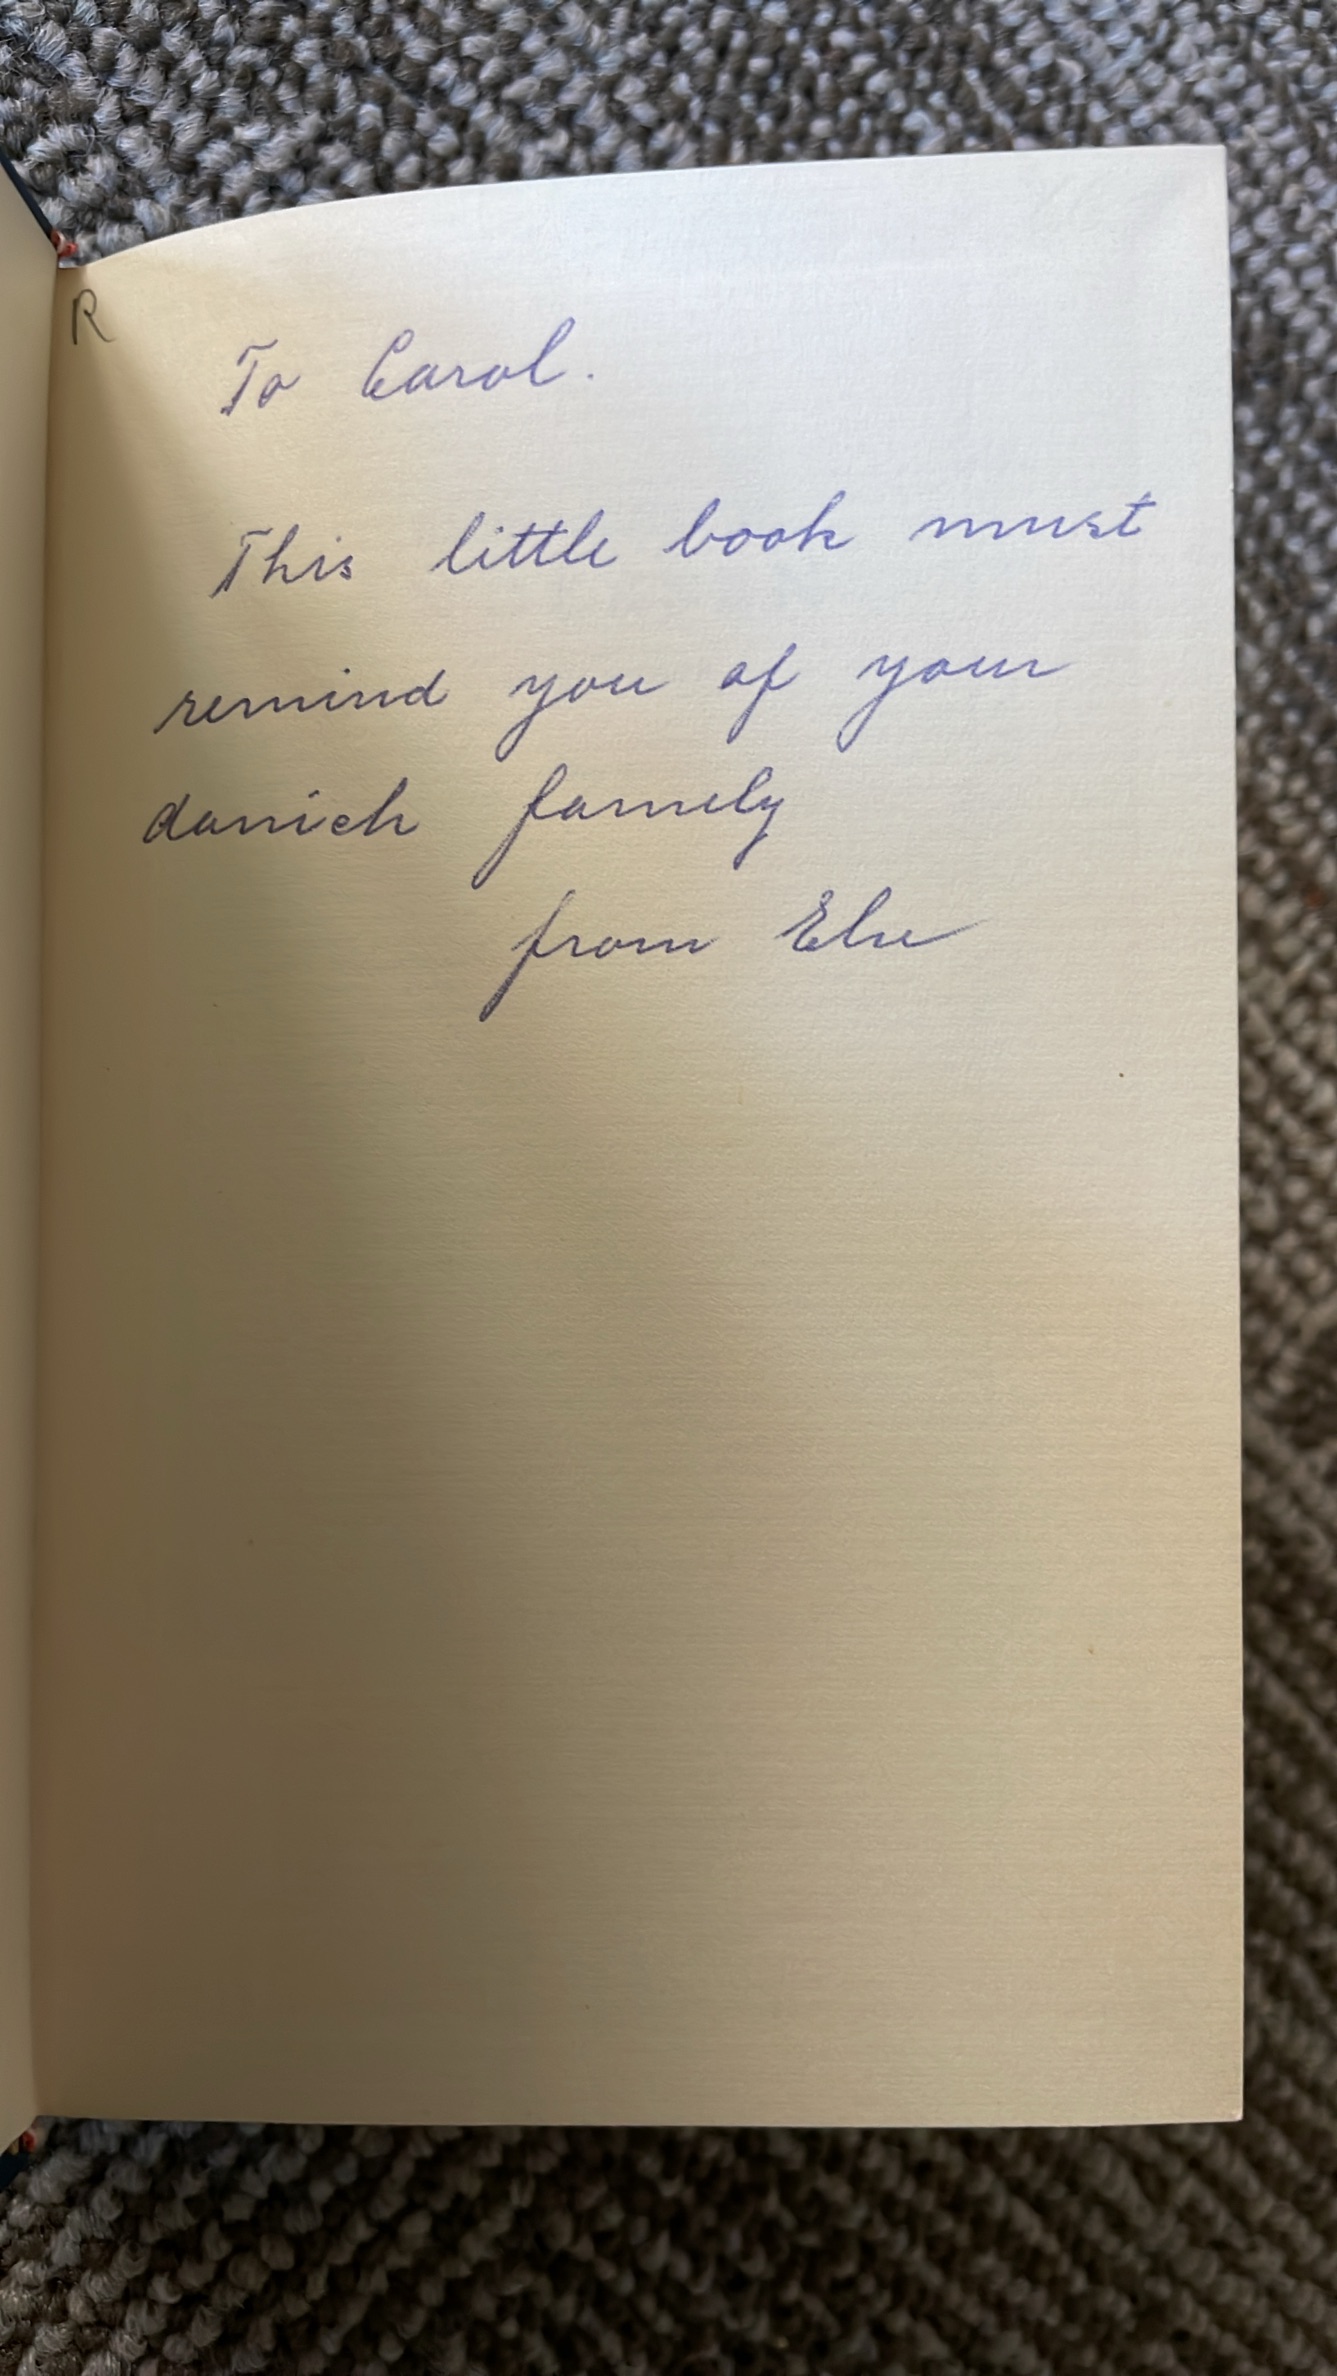 R
To Carol.
This little book must
remind you of your
danich famely
from Else